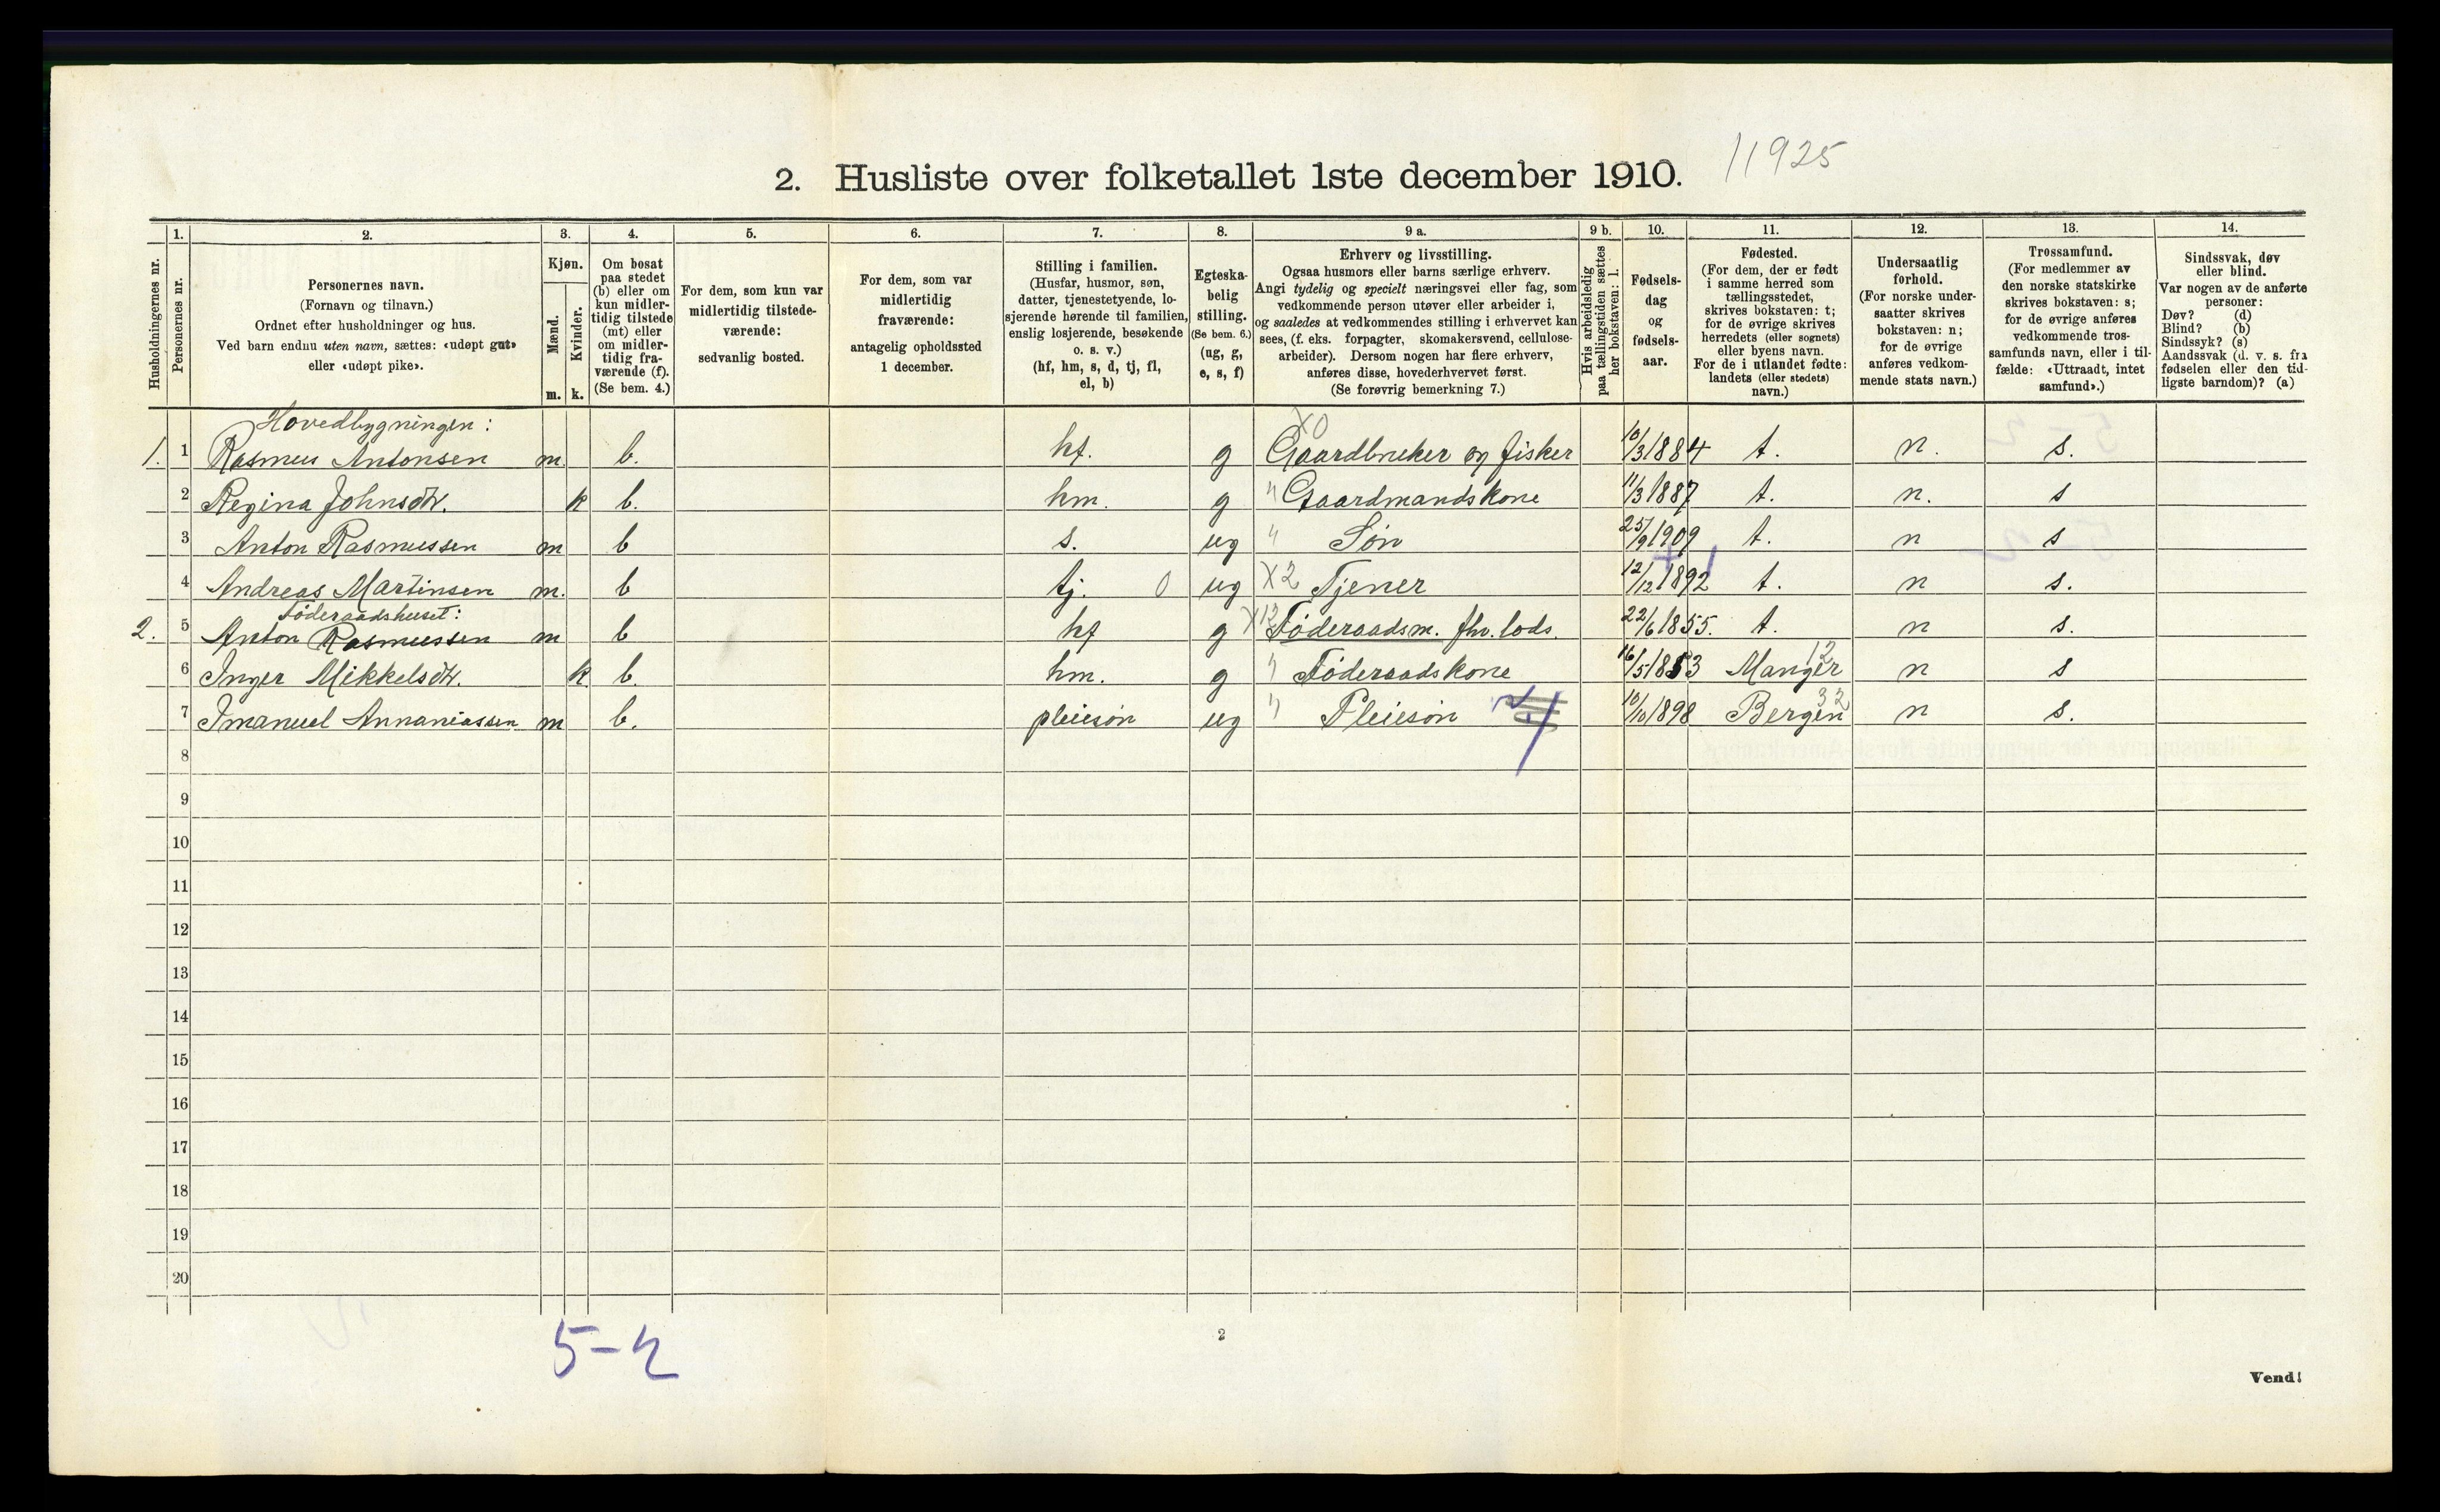 11925
2. Husliste over folketallet 1ste december 1910.
Husholdningernes nr.
1. Personernes nr.
2. Personernes navn.
(Fornavn og tilnavn.)
Ordnet efter husholdninger og hus.
Ved barn endnu uten navn, sættes: «udøpt gut»
eller «udøpt pike».
3. Kjøn.
Mænd. m.
Kvinder. k.
4. Om bosat
paa stedet
(b) eller om
kun midler-
tidig tilstede
(mt) eller
om midler-
tidig fra-
værende (f).
(Se bem. 4.)
5. For dem, som kun var
midlertidig tilstede-
værende:
sedvanlig bosted.
6. For dem, som var
midlertidig
fraværende:
antagelig opholdssted
1 december.
7. Stilling i familien.
(Husfar, husmor, søn,
datter, tjenestetyende, lo-
sjerende hørende til familien,
enslig losjerende, besøkende
o. s. v.)
(hf, hm, s, d, tj, fl,
el, b)
8. Egteska-
belig
stilling.
(Se bem. 6.)
(ug, g,
e, s, f)
9 a. Erhverv og livsstilling.
Ogsaa husmors eller barns særlige erhverv.
Angi tydelig og specielt næringsvei eller fag, som
vedkommende person utøver eller arbeider i,
og saaledes at vedkommendes stilling i erhvervet kan
sees, (f. eks. forpagter, skomakersvend, cellulose-
arbeider). Dersom nogen har flere erhverv,
anføres disse, hovederhvervet først.
(Se forøvrig bemerkning 7.)
9 b. Hvis arbeidsledig
paa tællingstiden sættes
her bokstaven: l.
10. Fødsels-
dag
og
fødsels-
aar.
11. Fødested.
(For dem, der er født
i samme herred som
tællingsstedet,
skrives bokstaven: t;
for de øvrige skrives
herredets (eller sognets)
eller byens navn.
For de i utlandet fødte:
landets (eller stedets)
navn.)
12. Undersaatlig
forhold.
(For norske under-
saatter skrives
bokstaven: n;
for de øvrige
anføres vedkom-
mende stats navn.)
13. Trossamfund.
(For medlemmer av
den norske statskirke
skrives bokstaven: s;
for de øvrige anføres
vedkommende tros-
samfunds navn, eller i til-
fælde: «Uttraadt, intet
samfund».)
14. Sindssvak, døv
eller blind.
Var nogen av de anførte
personer:
Døv? (d)
Blind? (b)
Sindssyk? (s)
Aandssvak (d. v. s. fra
fødselen eller den tid-
ligste barndom)? (a)
Hovedbygningen: X0
1. 1 Rasmus Antonsen m. b. hf. g Gaardbruker og fisker 10/3 1884 t. n. s.
2 Regina Johnsdtr. k b. hm. g " Gaardmandskone 11/3 1887 t. n. s
3 Anton Rasmussen m b s. ug " Søn 25/9 1909 t. n s
4 Andreas Martinsen m. b tj. 0 ug X2 Tjener 12/12 1892 t. n s.
Føderaadshuset:
2. 5 Anton Rasmussen m b hf g X12 Føderaadsm. fhv. lods. 22/6 1855. t. n s.
6 Inger Mikkelsdtr. k. b. hm. g " Føderaadskone 16/5 1853 Manger 12 n s
7 Imanuel Annaniassen m b. pleiesøn ug " Pleiesøn 10/10 1898 Bergen 32 n s.
8
9
10
11
12
13
14
15
16
17
18
19
20
5-2
2
Vend!